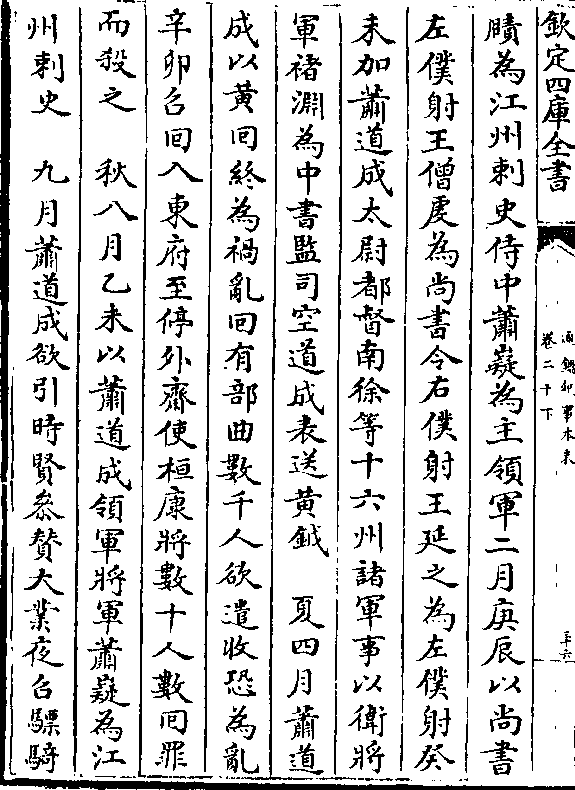 欽定四庫全書
通鑑紀事本末
卷二十下
三十六
賾為江州刺史侍中蕭嶷為主領軍二月庚辰以尚書
左僕射王僧虔為尚書令右僕射王延之為左僕射癸
未加蕭道成太尉都督南徐等十六州諸軍事以衛將
軍褚淵為中書監司空道成表送黄鉞　夏四月蕭道
成以黄回終為禍亂回有部曲數千人欲遣收恐為亂
辛卯召回入東府至停外齋使桓康將數十人數回罪
而殺之　秋八月乙未以蕭道成領軍將軍蕭嶷為江
州刺史　九月蕭道成欲引時賢叅賛大業夜召驃騎